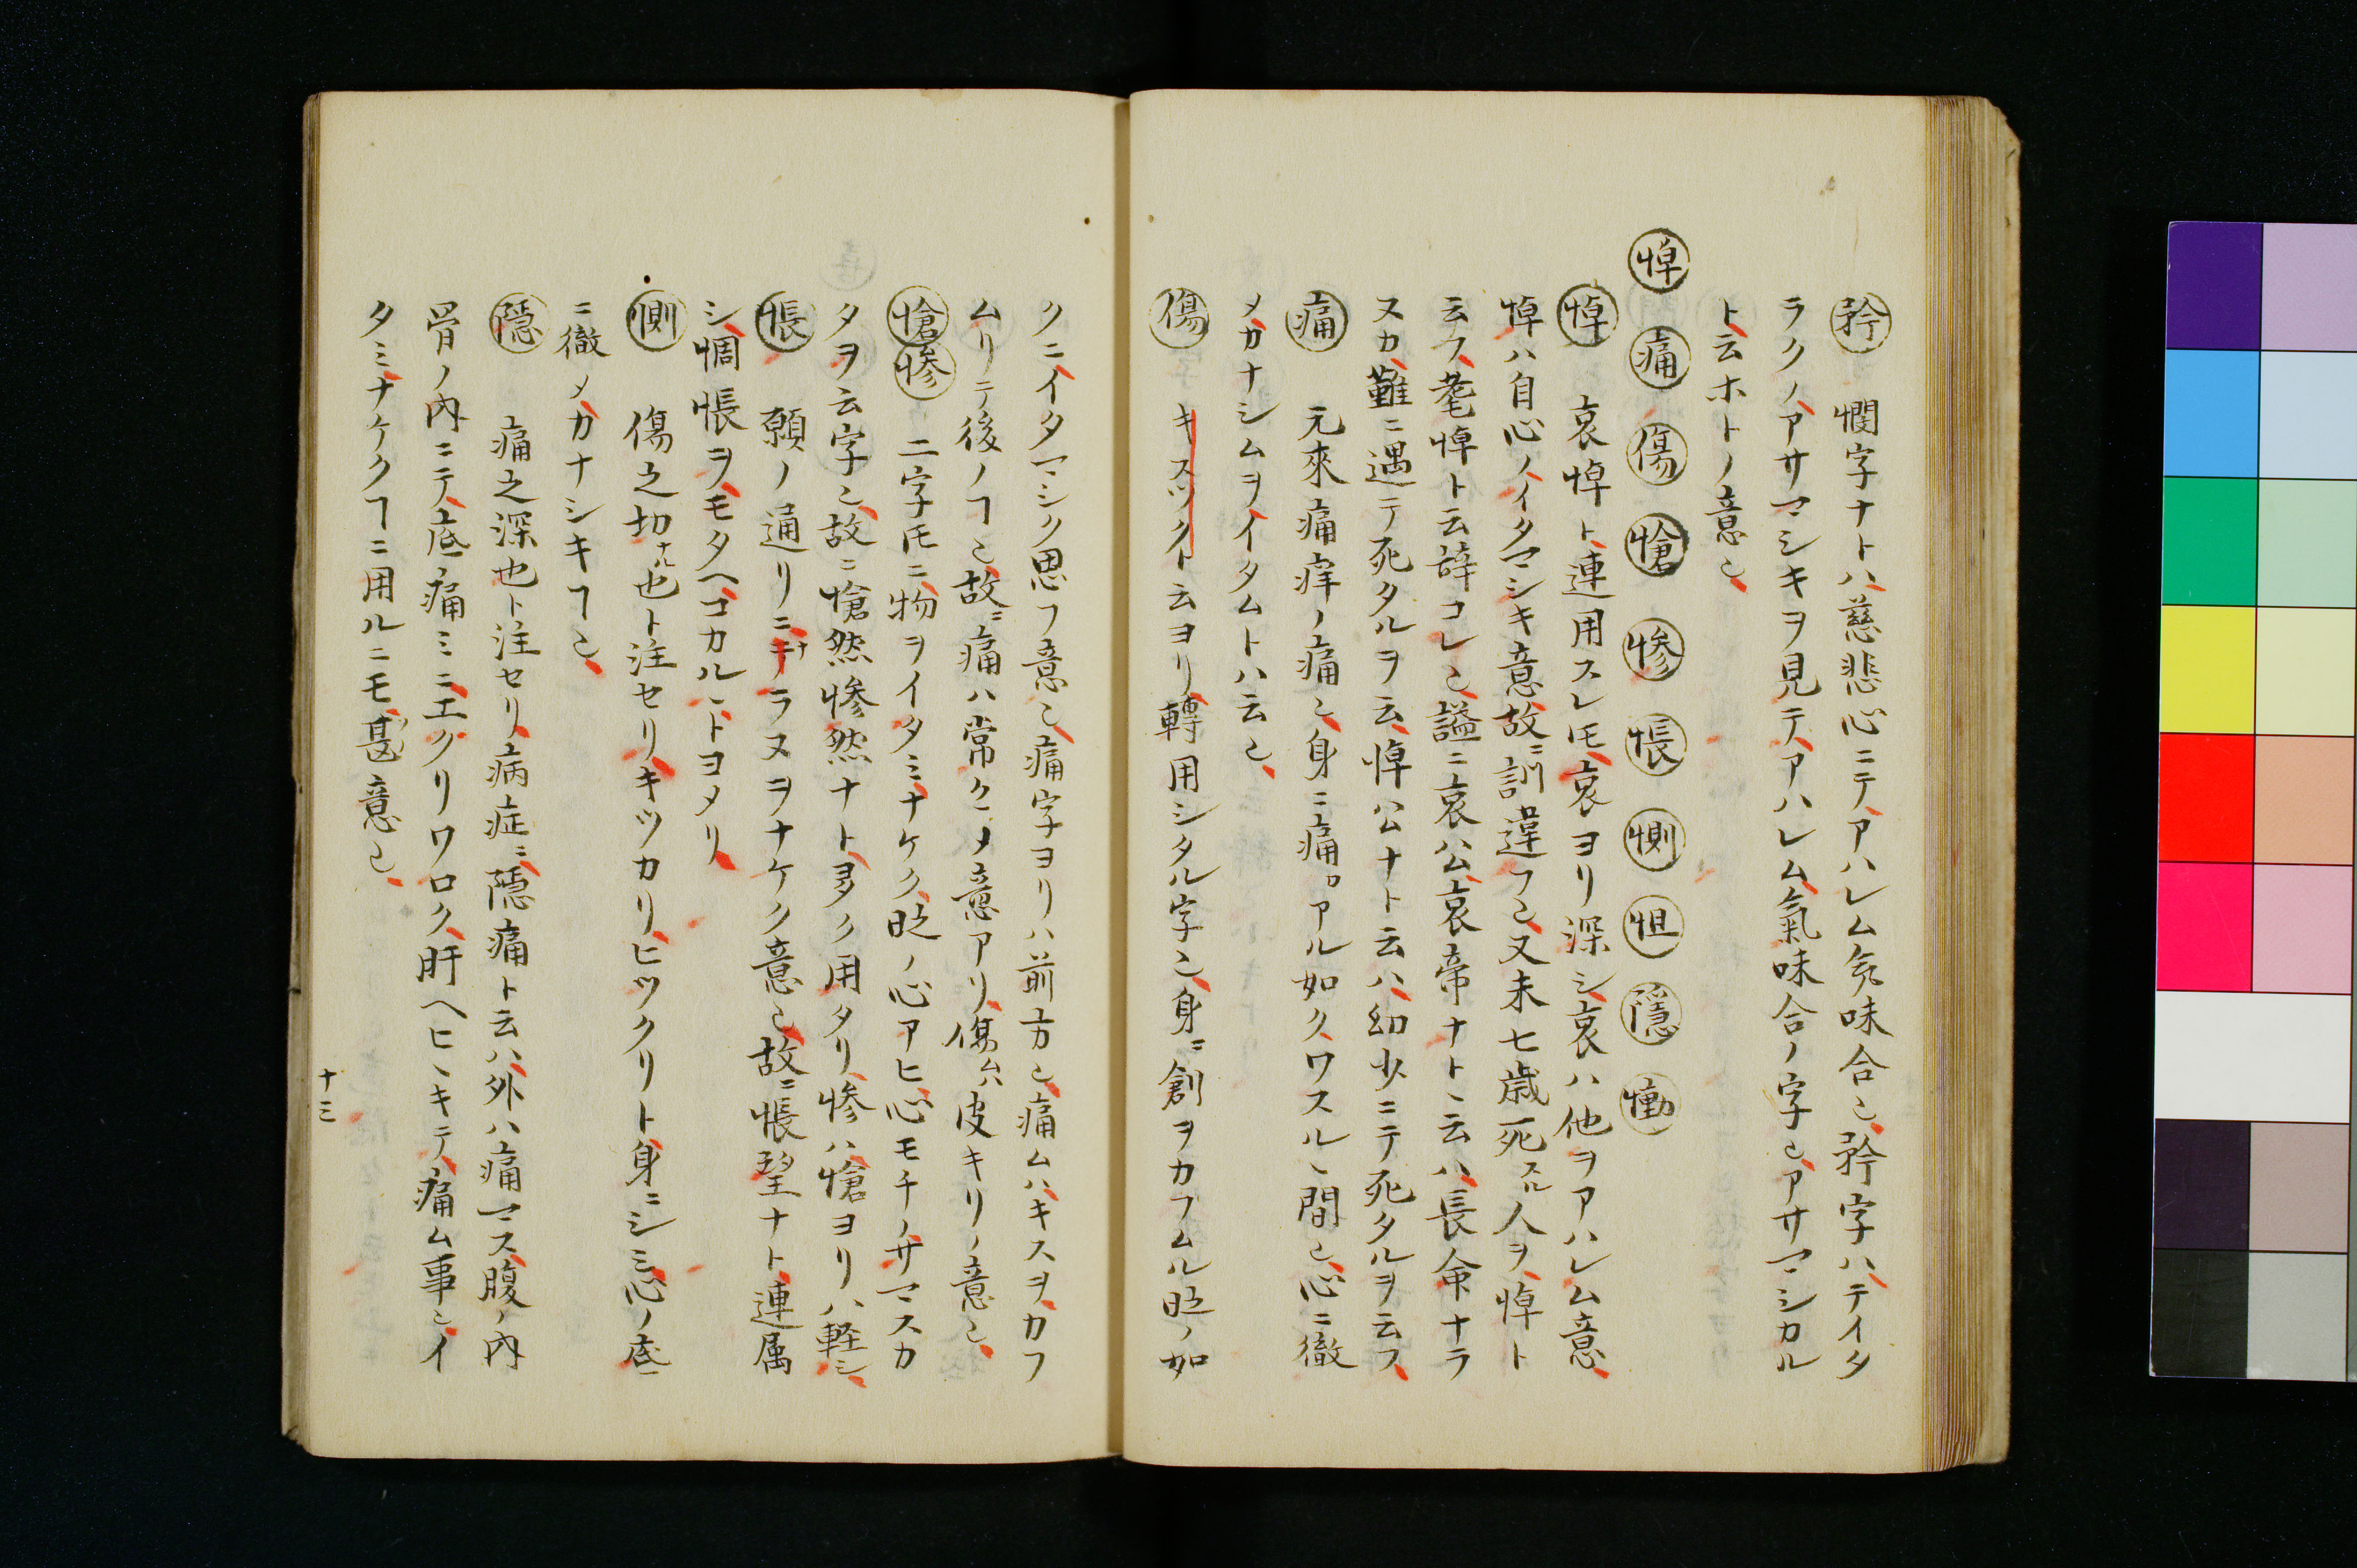 矜 憫字ナトハ慈悲心ニテアハレム気味合也矜字ハテイタ
ラクノアサマシキヲ見テアハレム氣味合ノ字也アサマシカル
ト云ホトノ意也
悼 痛 傷 愴 惨 悵 惻 怛 隱 慟
悼 哀悼ト連用スレ𪜈哀ヨリ深シ哀ハ他ヲアハレム意
悼ハ自心ノイタマシキ意故ニ訓違フ也又未七歳死スル人ヲ悼ト
云フ耄悼ト云辞コレ也謚ニ哀公哀帝ナトヽ云ハ長命ナラ
スカ難ニ遇テ死タルヲ云悼公ナト云ハ幼少ニテ死タルヲ云フ
痛 元來痛痒ノ痛也身ニ痛ロアル如クワスルヽ間也心ニ徹
メカナシムヲイタムトハ云也
傷 キスツクト云ヨリ轉用シタル字也身ニ創ヲカフムル時ノ如
クニイタマシク思フ意也痛字ヨリハ前方也痛ムハキスヲカフ
ムリテ後ノヿ也故ニ痛ハ常クニメ意アリ傷ムハ皮キリノ意也
愴惨 二字𪜈ニ物ヲイタミナケク時ノ心アヒ心モチノサマスカ
タヲ云字也故ニ愴然惨然ナト多ク用タリ惨ハ愴ヨリハ軽シ
悵 願ノ通リニナラヌヲナケク意也故ニ悵望ナト連属
シ惆悵ヲモタヘコカルヽトヨメリ
惻 傷之切ナル也ト注セリキツカリヒツクリト身ニシミ心ノ底
ニ徹メカナシキヿ也
隱 痛之深也ト注セリ病症ニ隱痛ト云ハ外ハ痛マス腹ノ内
骨ノ内ニテ底痛ミニエクリワロク肝ヘヒヽキテ痛ム事也イ
タミナケクヿニ用ルニモ甚意也
十三